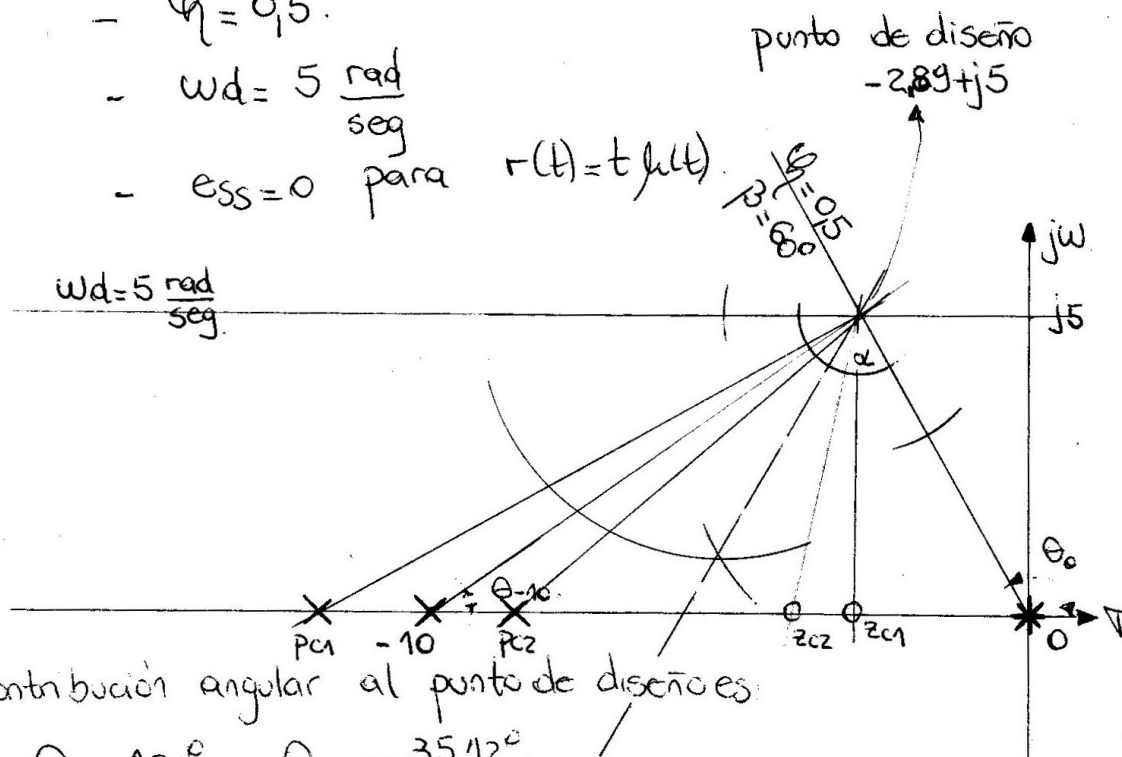 - η = 0,5.
- wd = 5 rad/seg
- ess = 0 para r(t) = t μ(t).
punto de diseño
-2,89+j5
ξ = 0,5
β = 60
jω
wd = 5 rad/seg.
j5
α
θo
θ-10
Pc1 -10 Pc2 Zc2 Zc1 0 σ
ontribución angular al punto de diseño es:
35,12°